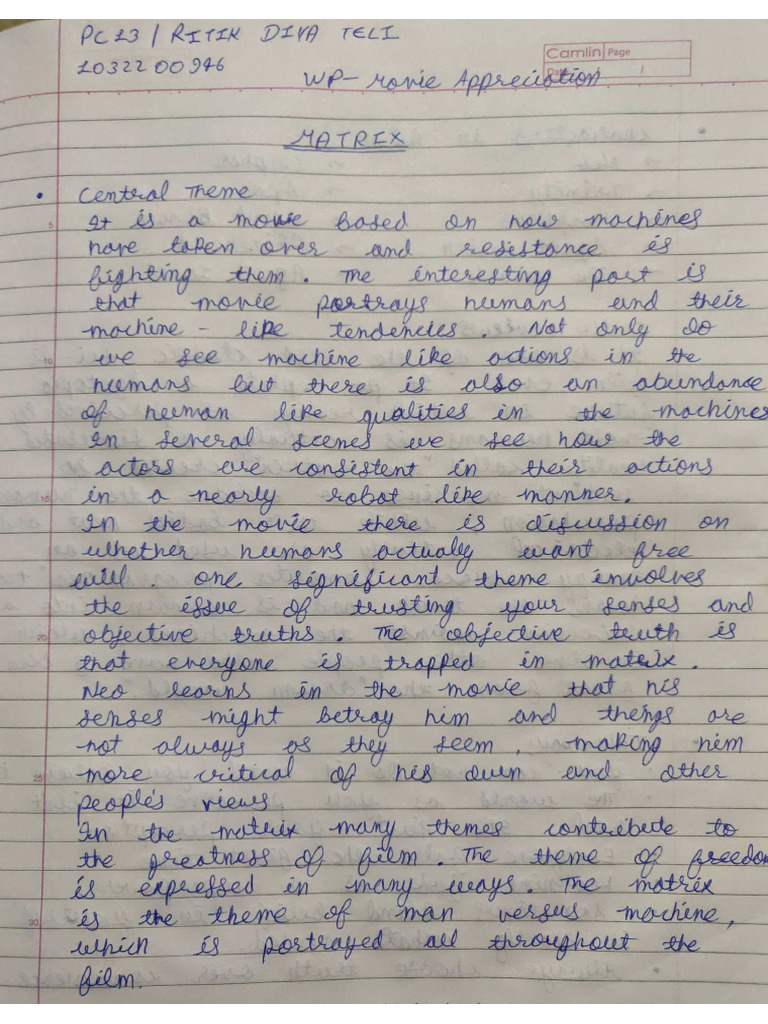 PC23 / RITIK DIVA TELI
1032200946
Camlin Page
Date / /
WP - Movie Appreciation
MATRIX
• Central Theme
It is a movie based on how machines
have taken over and resistance is
fighting them. The interesting part is
that movie portrays humans and their
machine - like tendencies. Not only do
we see machine like actions in the
humans but there is also an abundance
of human like qualities in the machines
In several scenes we see how the
actors are consistent in their actions
in a nearly robot like manner.
In the movie there is discussion on
whether humans actually want free
will one significant theme involves
the issue of trusting your senses and
objective truths. The objective truth is
that everyone is trapped in matrix.
Neo learns in the movie that his
senses might betray him and things are
not always as they seem, making him
more critical of his own and other
people's views.
In the matrix many themes contribute to
the greatness of film. The theme of freedom
is expressed in many ways. The matrix
is the theme of man versus machine,
which is portrayed all throughout the
film.
5
10
15
20
25
30